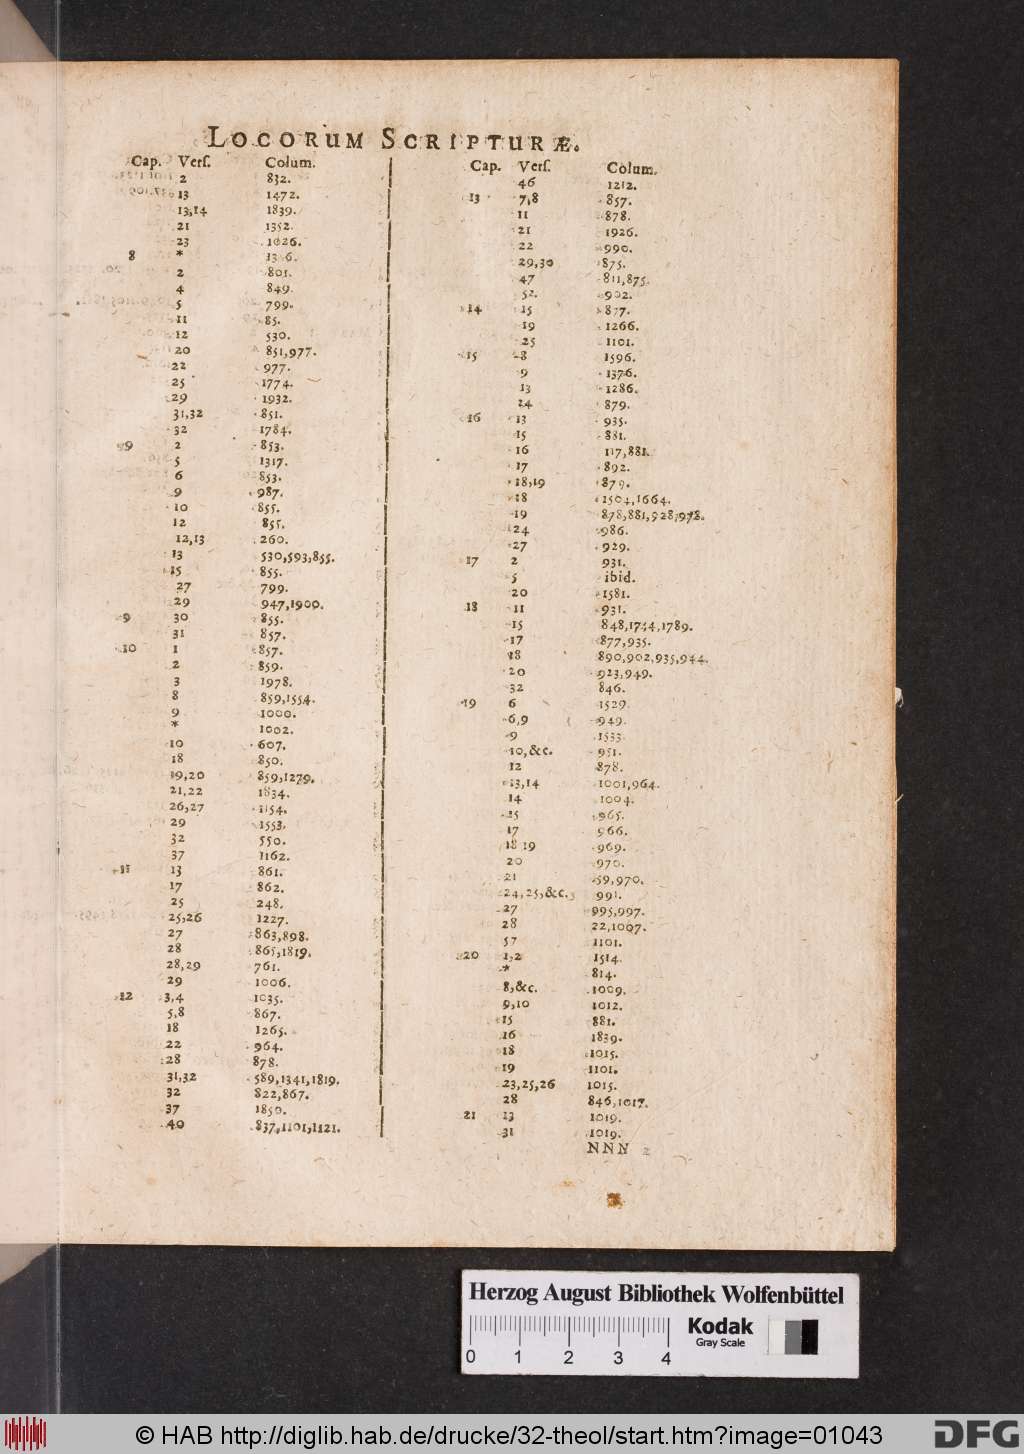 LOCORUM SCRIPTURÆ.
Cap. Vers. Colum.
2 832.
13 1472.
13,14 1839.
21 1352.
23 1026.
8 *
2 801.
4 849.
5 799.
11 85.
12 530.
20 851,977.
22 977.
25 1774.
29 1932.
31,32 851.
32 1784.
9 2 853.
5 1317.
6 853.
9 987.
10 855.
12 855.
12,13 260.
13 530,593,855.
15 855.
27 799.
29 947,1900.
9 30 855.
31 857.
10 1 857.
2 859.
3 1978.
8 859,1554.
9 1000.
* 1002.
10 607.
18 850.
19,20 859,1279.
21,22 1834.
26,27 1154.
29 1553.
32 550.
37 1162.
11 13 861.
17 862.
25 248.
25,26 1227.
27 863,898.
28 865,1819.
28,29 761.
29 1006.
12 3,4 1035.
5,8 867.
18 1265.
22 964.
28 878.
31,32 589,1341,1819.
32 822,867.
37 1850.
40 837,1101,1121.
Cap. Vers. Colum.
46 1212.
13 7,8 857.
11 878.
21 1926.
22 990.
29,30 875.
47 811,875.
52. 902.
14 15 877.
19 1266.
25 1101.
15 8 1596.
9 1376.
13 1286.
24 879.
16 13 935.
15 881.
16 117,881.
17 892.
18,19 879.
18 1504,1664.
19 878,881,928,978.
24 986.
27 929.
17 2 931.
5 ibid.
20 1581.
18 11 931.
15 848,1744,1789.
17 877,935.
18 890,902,935,944.
20 923,949.
32 846.
19 6 1529.
6,9 949.
9 1533.
10,&c. 951.
12 878.
13,14 1001,964.
14 1004.
15 965.
17 966.
18 19 969.
20 970.
21 59,970.
24,25,&c. 991.
27 995,997.
28 22,1007.
57 1101.
20 1,2 1514.
* 814.
8,&c. 1009.
9,10 1012.
15 881.
16 1839.
18 1015.
19 1101.
23,25,26 1015.
28 846,1017.
21 13 1019.
31 1019.
NNN 2
Herzog August Bibliothek Wolfenbüttel
0 1 2 3 4
Kodak
Gray Scale
© HAB http://diglib.hab.de/drucke/32-theol/start.htm?image=01043
DFG